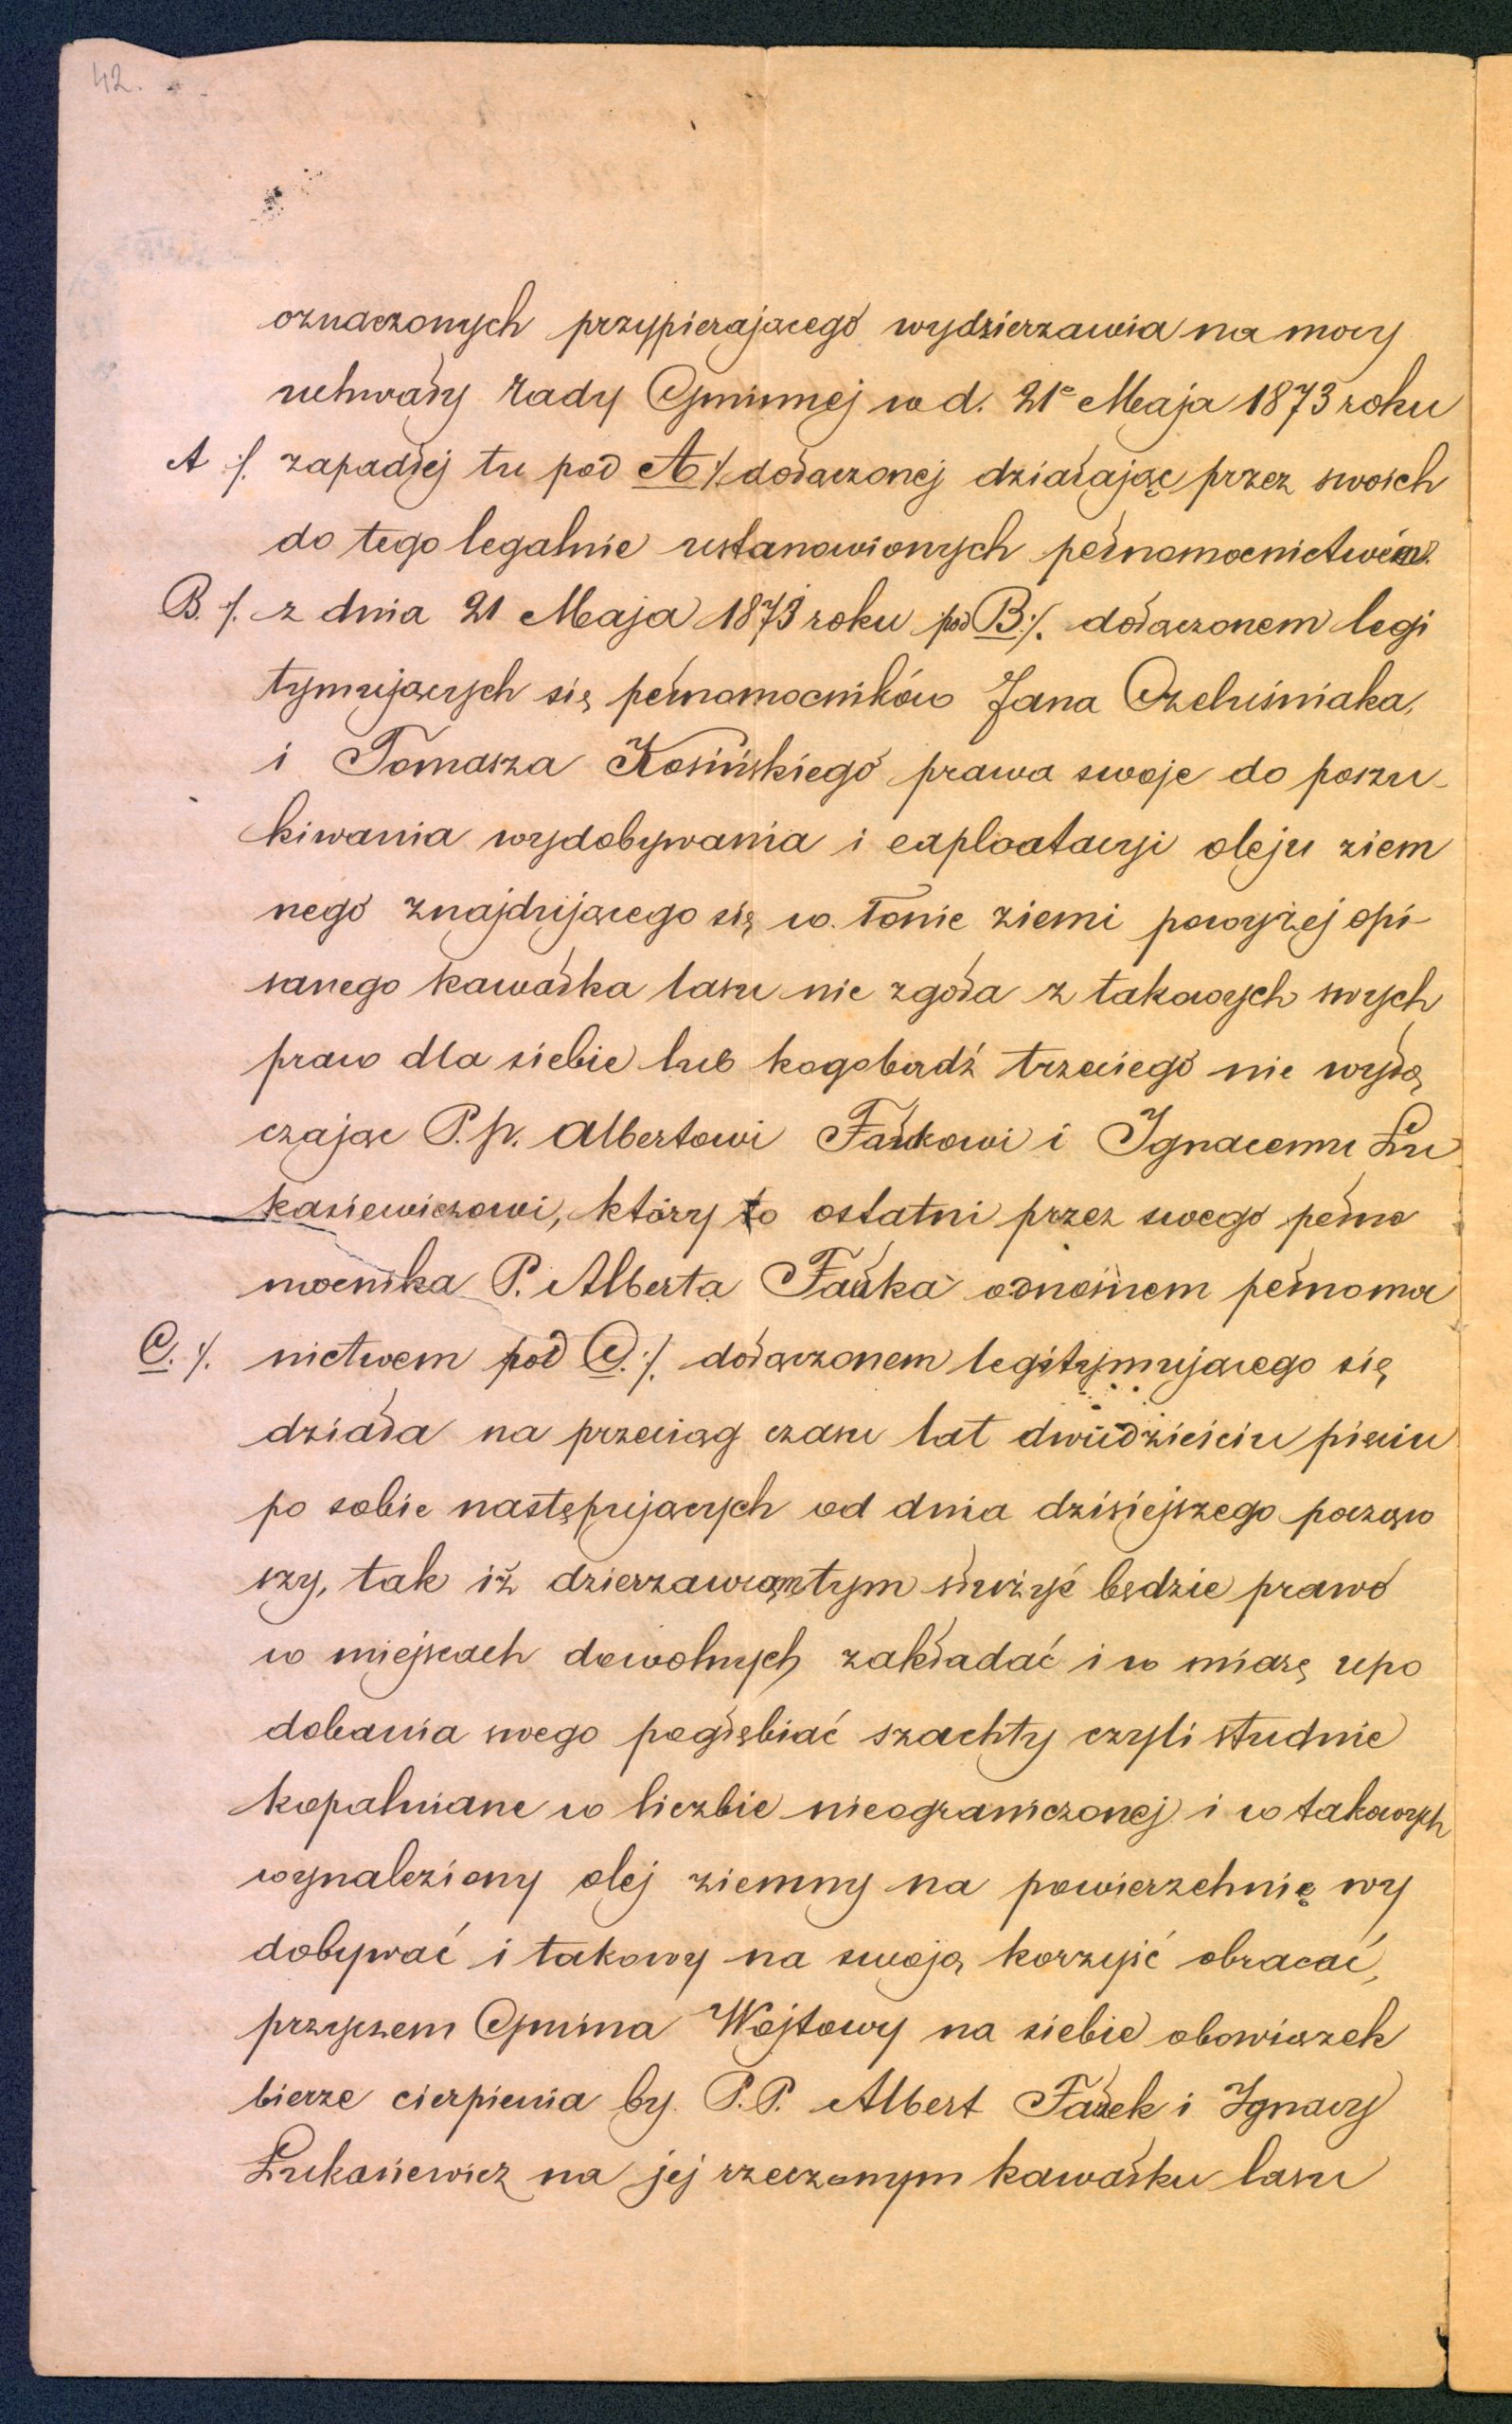 42.
oznaczonych przypierajacego wydzierzawia na mocy
uchwały rady Gminnej w d. 21º Maja 1873 roku
A ·/. zapadłej tu pod A ·/. dołaczonej działając przez swoich
do tego legalnie ustanowionych pełnomocnictwem
B. ·/. z dnia 21 Maja 1873 roku pod B ·/. dołaczonem legi
tymujących się pełnomocników Jana Czeluśniaka,
i Tomasza Kosińskiego prawa swoje do poszu-
kiwania wydobywania i exploatacyi oleju ziem
nego znajdującego się w łonie ziemi powyżej opi-
sanego kawałka lasu nic zgoła z takowych swych
praw dla siebie lub kogobądź trzeciego nie wyłą
czając P. p. Albertowi Faukowi i Ignacemu Łu
kasiewiczowi, który to ostatni przez swego pełno
mocnika P. Alberta Fauka odnośnem pełnomoc
C. ·/. nictwem pod C. ·/. dołączonem legitymującego się
działa na przeciąg czasu lat dwudzieściu pięciu
po sobie następujących od dnia dzisiejszego począw
szy, tak iż dzierzawcom tym służyć będzie prawo
w miejscach dowolnych zakładać i w miarę upo
dobania swego pogłębiać szachty czyli studnie
kopalniane w liczbie nieograniczonej i w takowych
wynaleziony olej ziemny na powierzchnię wy
dobywać i takowy na swoją korzyść obracać,
przyczem Gmina Wojtowy na siebie obowiązek
bierze cierpienia by P.P. Albert Fauk i Ignacy
Łukasiewicz na jej rzeczonym kawałku lasu